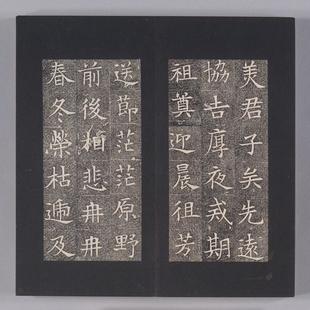 美君子矣先遠
協吉厚夜戒期
祖奠迎晨徂芳
送節茫茫原野
前後相悲冉冉
春冬榮枯遞及